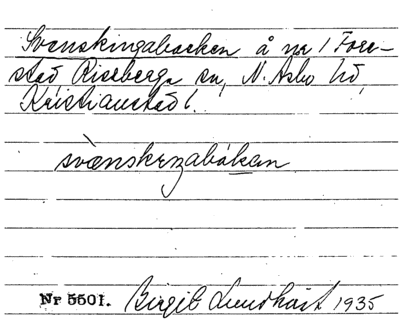 Svenskingabacken å nr 1 Fore-
stad Riseberga sn, N. Åsbo hd,
Kristianstad l.
svænskɩŋabákan
Nr 5501. Birgit Lundkvist 1935